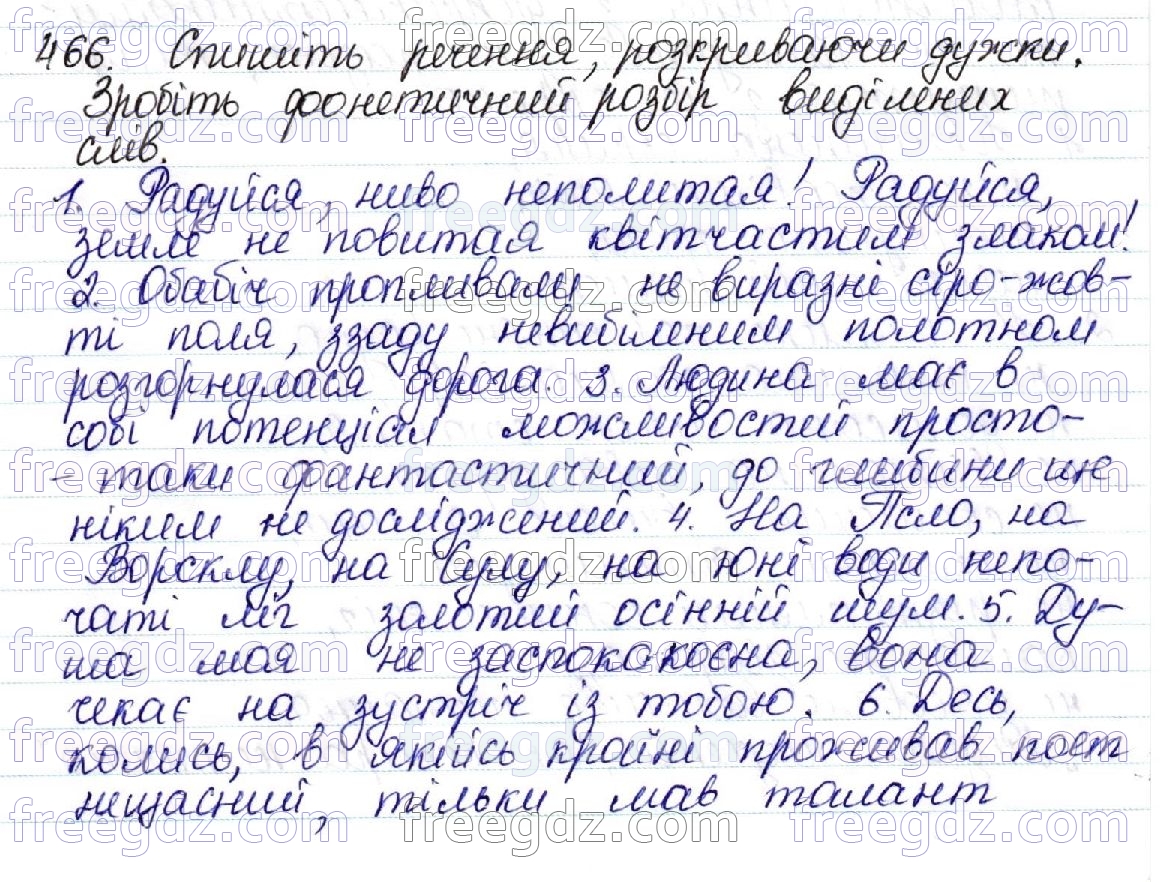 466. Спишіть речення, розкриваючи дужки.
Зробіть фонетичний розбір виділених
слів.
1. Радуйся, ниво неполитая! Радуйся,
земле не повитая квітчастим злаком!
2. Обабіч пропливали не виразні сіро-жов-
ті поля, ззаду невибіленим полотном
розгорнулася дорога. 3. Людина має в
собі потенціал можливостей просто-
-таки фантастичний, до глибини ще
ніким не досліджений. 4. На Псло, на
Ворсклу, на Сулу, на юні води непо-
чаті ліг золотий осінній шум. 5. Ду-
ша моя не заспококоєна, вона
чекає на зустріч із тобою. 6. Десь,
колись, в якійсь країні проживав поет
нещасний, тільки мав талант
freegdz.com freegdz.com freegdz.com